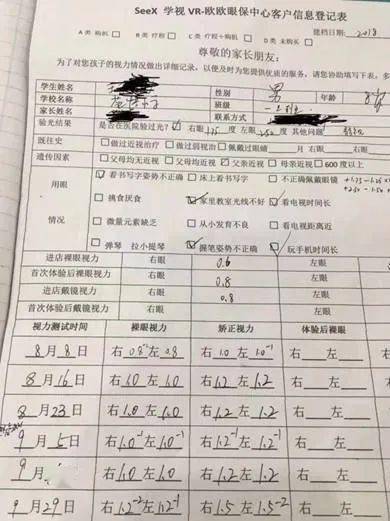 SeeX 学视 VR-欧欧眼保中心客户信息登记表
A类 购机 □ B类 疗程 □ C类 疗程+购机 □ D类 未购长 □ 建档日期: 2018
尊敬的家长朋友:
为了对您孩子的视力情况做出详细记录,以便及时为您提供优质的服务,请您协助填写下表,多
学生姓名 性别 男 年龄
学校名称 班级
家长姓名 联系方式
验光结果 是否在医院验过光? ☑ 右眼 175 度 左眼 250 度 其他问题
既往史 □做过近视治疗 □做过弱视治 □佩戴过眼睛 月 右眼 右眼
遗传因素 □父母均无近视 □父母均近视 ☑父亲近视 □母亲近视 □600度以上
用眼 ☑看书写字姿势不正确 □床上看书写字 □不正确佩戴眼镜
□挑食厌食 ☑家里教室光线不好 ☑看电视时间长
情况 □微量元素缺乏 □从小发育不良 □看电视距离近
□弹琴 拉小提琴 ☑握笔姿势不正确 ☑玩手机时间长
进店裸眼视力 右眼 0.6 左眼
首次体验后裸眼视力 右眼 0.8 左眼
进店戴镜视力 右眼 0.8 左眼
首次体验后戴镜视力 右眼 左眼
视力测试时间 裸眼视力 矫正视力 体验后裸眼
8月8日 右0.8⁻²左0.8 右1.0左1.0⁻¹ 右 左
8月16日 右1.0左1.0 右1.2左1.2 右 左
8月23日 右1.0左1.0 右1.2左1.2 右 左
9月5日 右1.0⁻¹左1.0⁻¹ 右1.2⁻¹左1.2⁻¹ 右 左
9月 右1.0左1.0 右1.2左1.2 右 左
9月29日 右1.2⁻²左1.2⁻¹ 右1.5左1.5⁻² 右 左